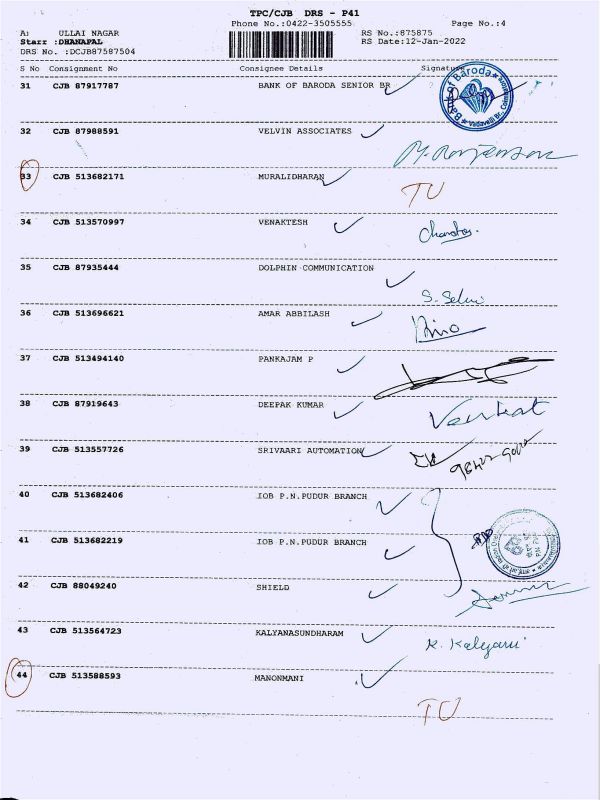 TPC/CJB DRS - P41
Phone No.:0422-3505555 Page No.:4
A: ULLAI NAGAR RS No.:875875
Starr :DHANAPAL RS Date:12-Jan-2022
DRS No. :DCJB87587504
S No Consignment No Consignee Details Signature
31 CJB 87917787 BANK OF BARODA SENIOR BR
Bank of Baroda
32 CJB 87988591 VELVIN ASSOCIATES
33 CJB 513682171 MURALIDHARAN TU
34 CJB 513570997 VENAKTESH
35 CJB 87935444 DOLPHIN COMMUNICATION
S. Selvi
36 CJB 513696621 AMAR ABBILASH
37 CJB 513494140 PANKAJAM P
38 CJB 87919643 DEEPAK KUMAR Venkat
39 CJB 513557726 SRIVAARI AUTOMATION
40 CJB 513682406 IOB P.N.PUDUR BRANCH
41 CJB 513682219 IOB P.N.PUDUR BRANCH
42 CJB 88049240 SHIELD
43 CJB 513564723 KALYANASUNDHARAM K. Kalyani
44 CJB 513588593 MANONMANI
TU